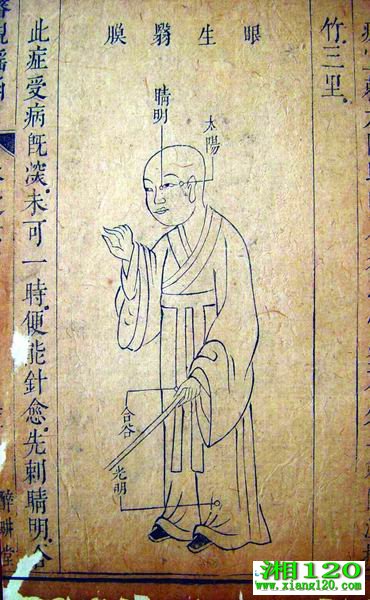 竹、三里。
眼生翳膜
睛明
太陽
合谷
光明
此症受病既深、未可一時便能針愈、先刺睛明、合
醉畊堂
湘120
www.xiang120.com